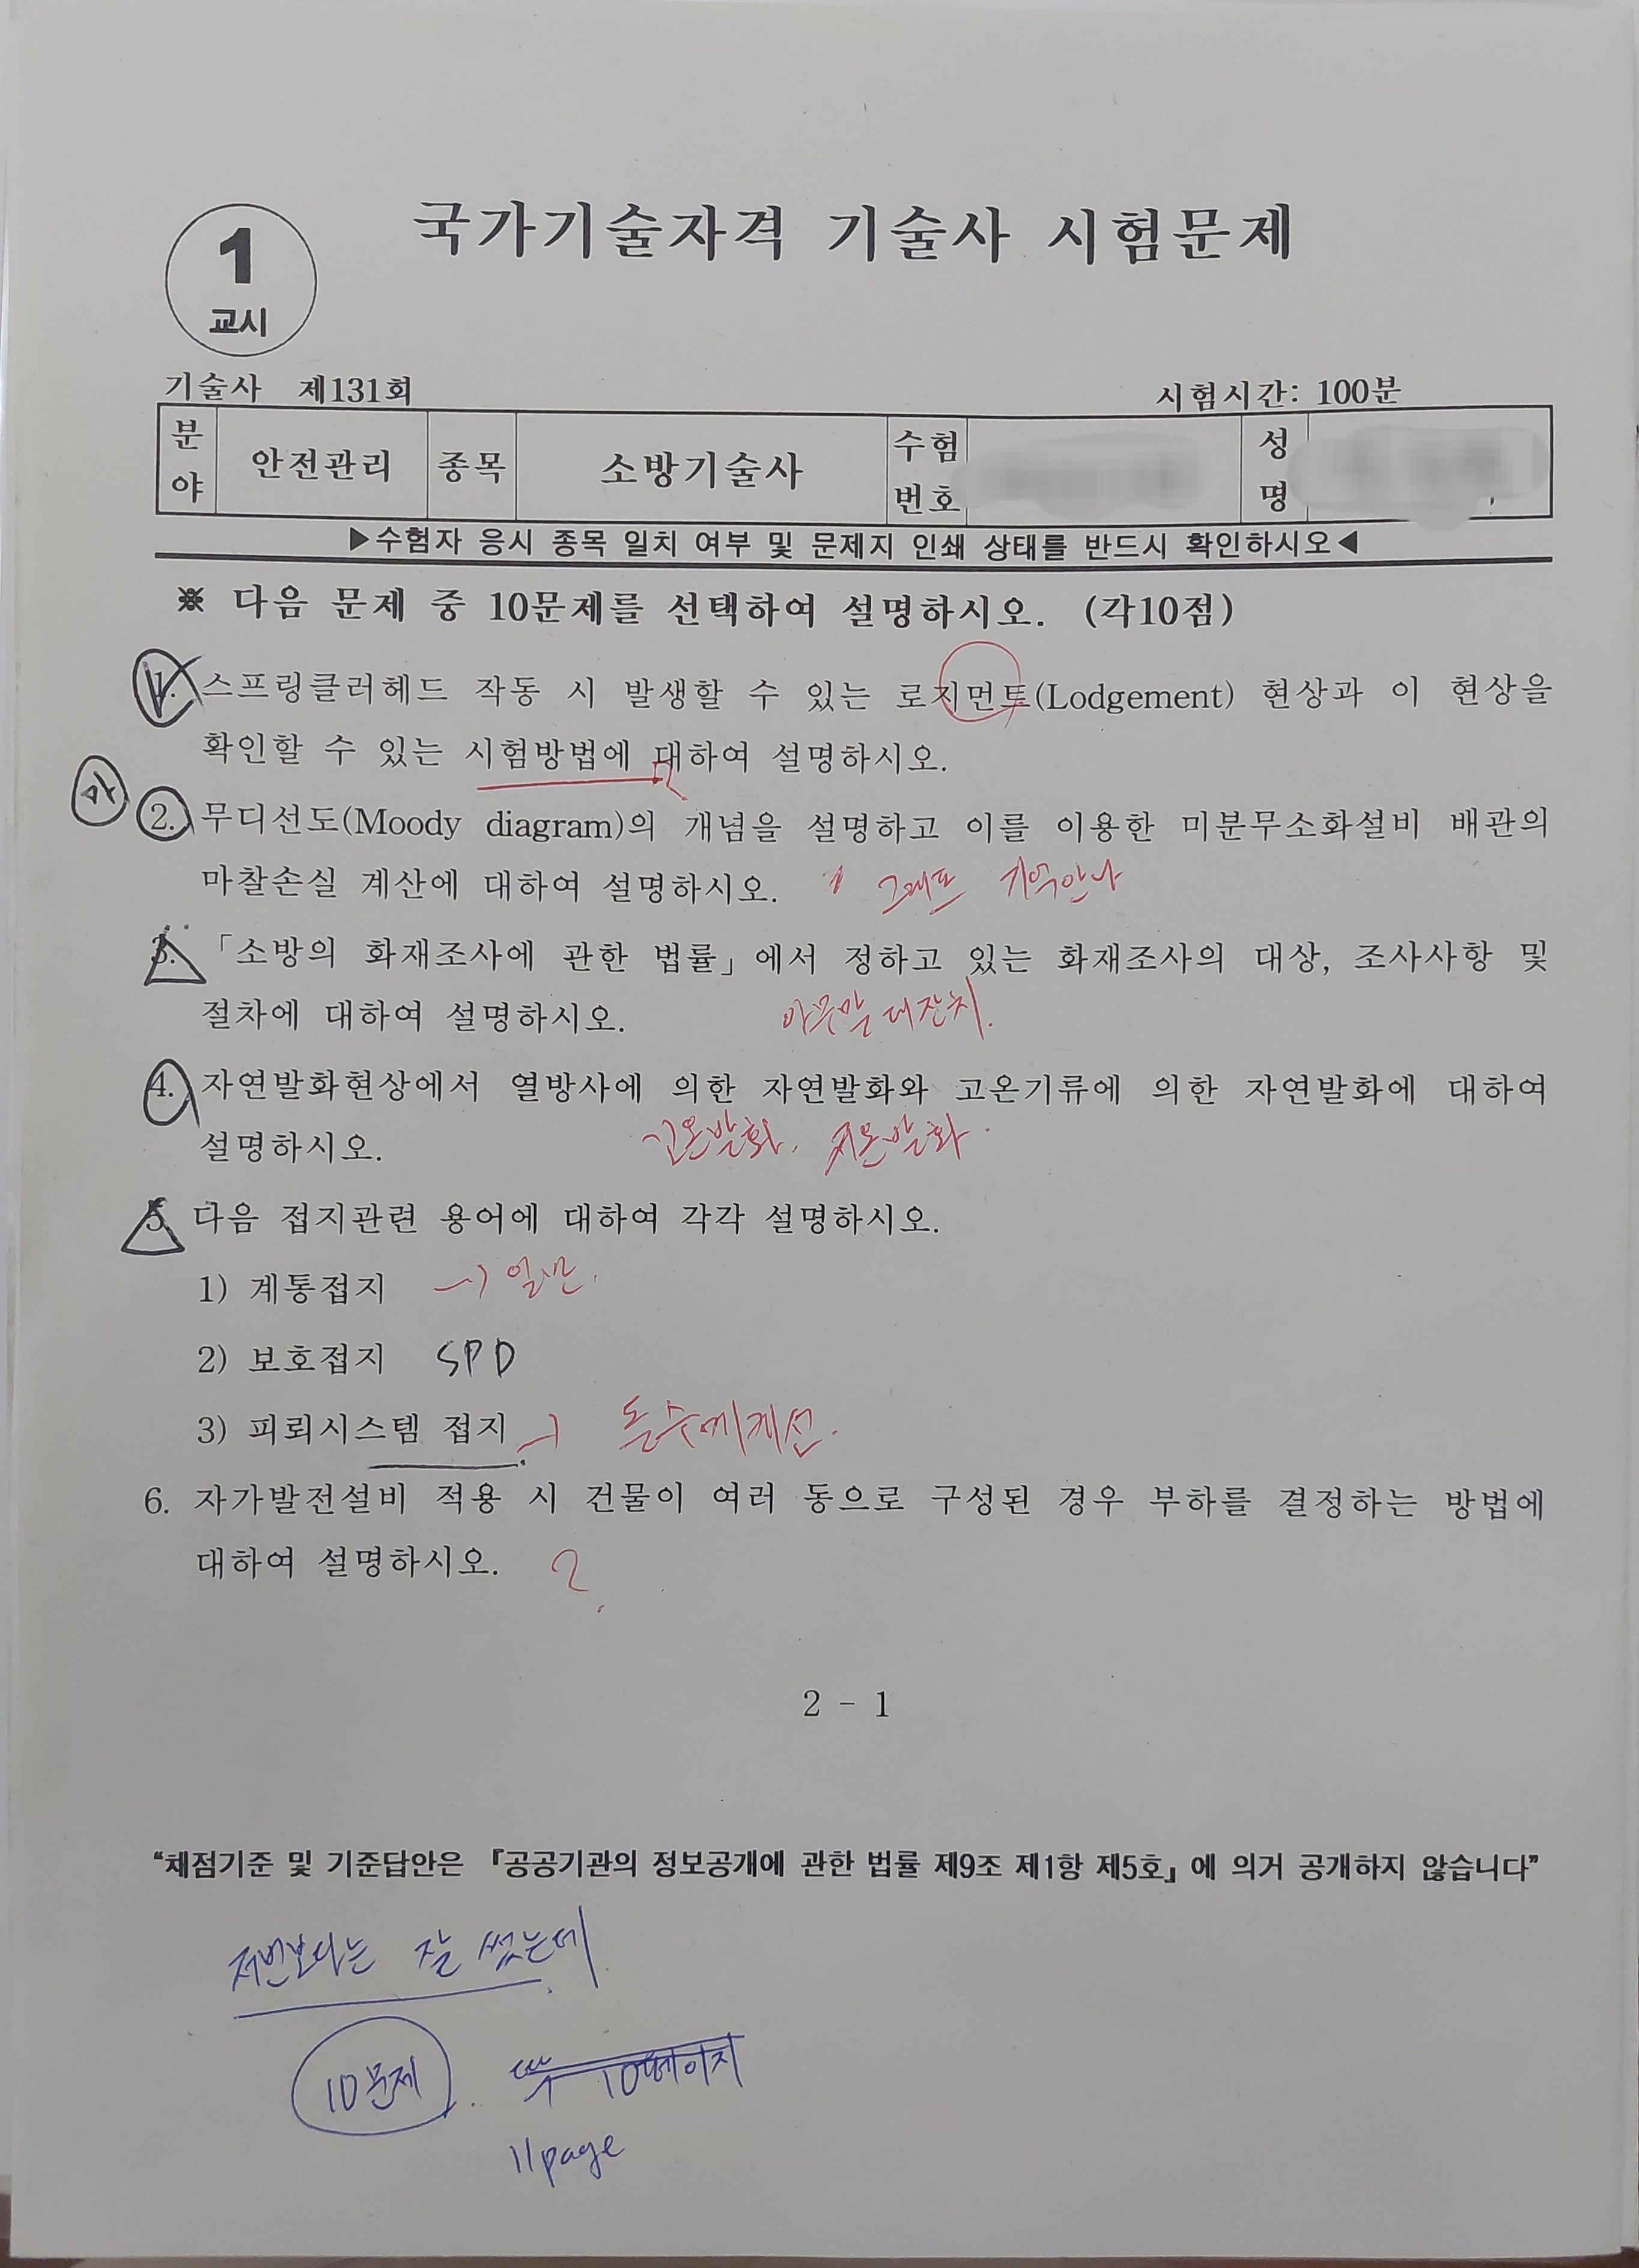 1
교시
국가기술자격 기술사 시험문제
기술사 제131회
시험시간: 100분
분야 안전관리 종목 소방기술사 수험번호 성명
▶수험자 응시 종목 일치 여부 및 문제지 인쇄 상태를 반드시 확인하시오◀
※ 다음 문제 중 10문제를 선택하여 설명하시오. (각10점)
1. 스프링클러헤드 작동 시 발생할 수 있는 로지먼트(Lodgement) 현상과 이 현상을
확인할 수 있는 시험방법에 대하여 설명하시오.
2. 무디선도(Moody diagram)의 개념을 설명하고 이를 이용한 미분무소화설비 배관의
마찰손실 계산에 대하여 설명하시오. 그래프 기억안나
3. 「소방의 화재조사에 관한 법률」에서 정하고 있는 화재조사의 대상, 조사사항 및
절차에 대하여 설명하시오. 아무말 대잔치.
4. 자연발화현상에서 열방사에 의한 자연발화와 고온기류에 의한 자연발화에 대하여
설명하시오. 고온발화, 저온발화.
5. 다음 접지관련 용어에 대하여 각각 설명하시오.
1) 계통접지 → 일반.
2) 보호접지 SPD
3) 피뢰시스템 접지 →
6. 자가발전설비 적용 시 건물이 여러 동으로 구성된 경우 부하를 결정하는 방법에
대하여 설명하시오. ?
2 - 1
“채점기준 및 기준답안은 『공공기관의 정보공개에 관한 법률 제9조 제1항 제5호』에 의거 공개하지 않습니다”
저번보다는 잘 썼는데
10문제. 10페이지
11page